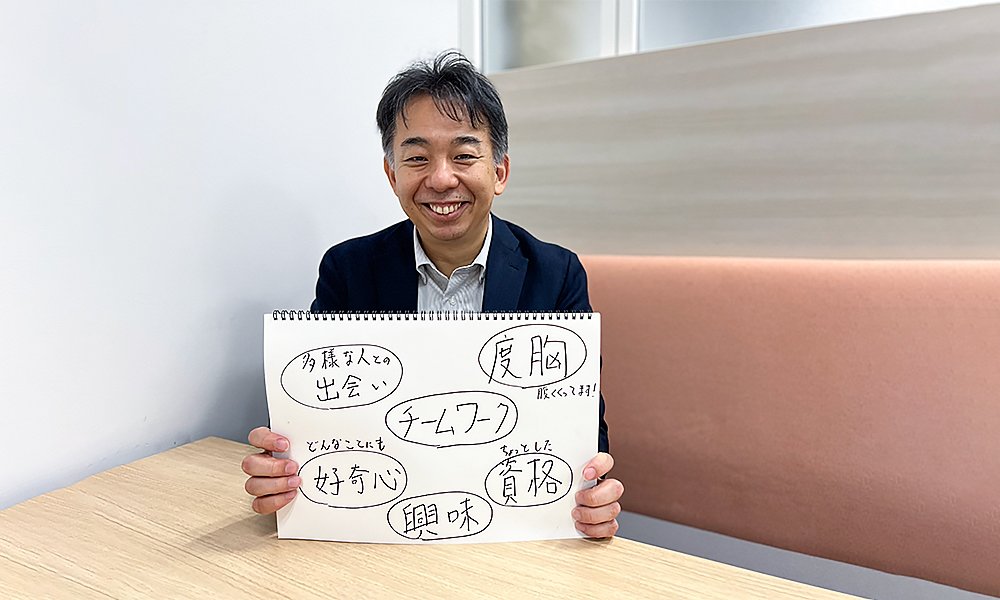 多様な人との
出会い
度胸
腹くくってます!
チームワーク
どんなことにも
好奇心
ちょっとした
資格
興味